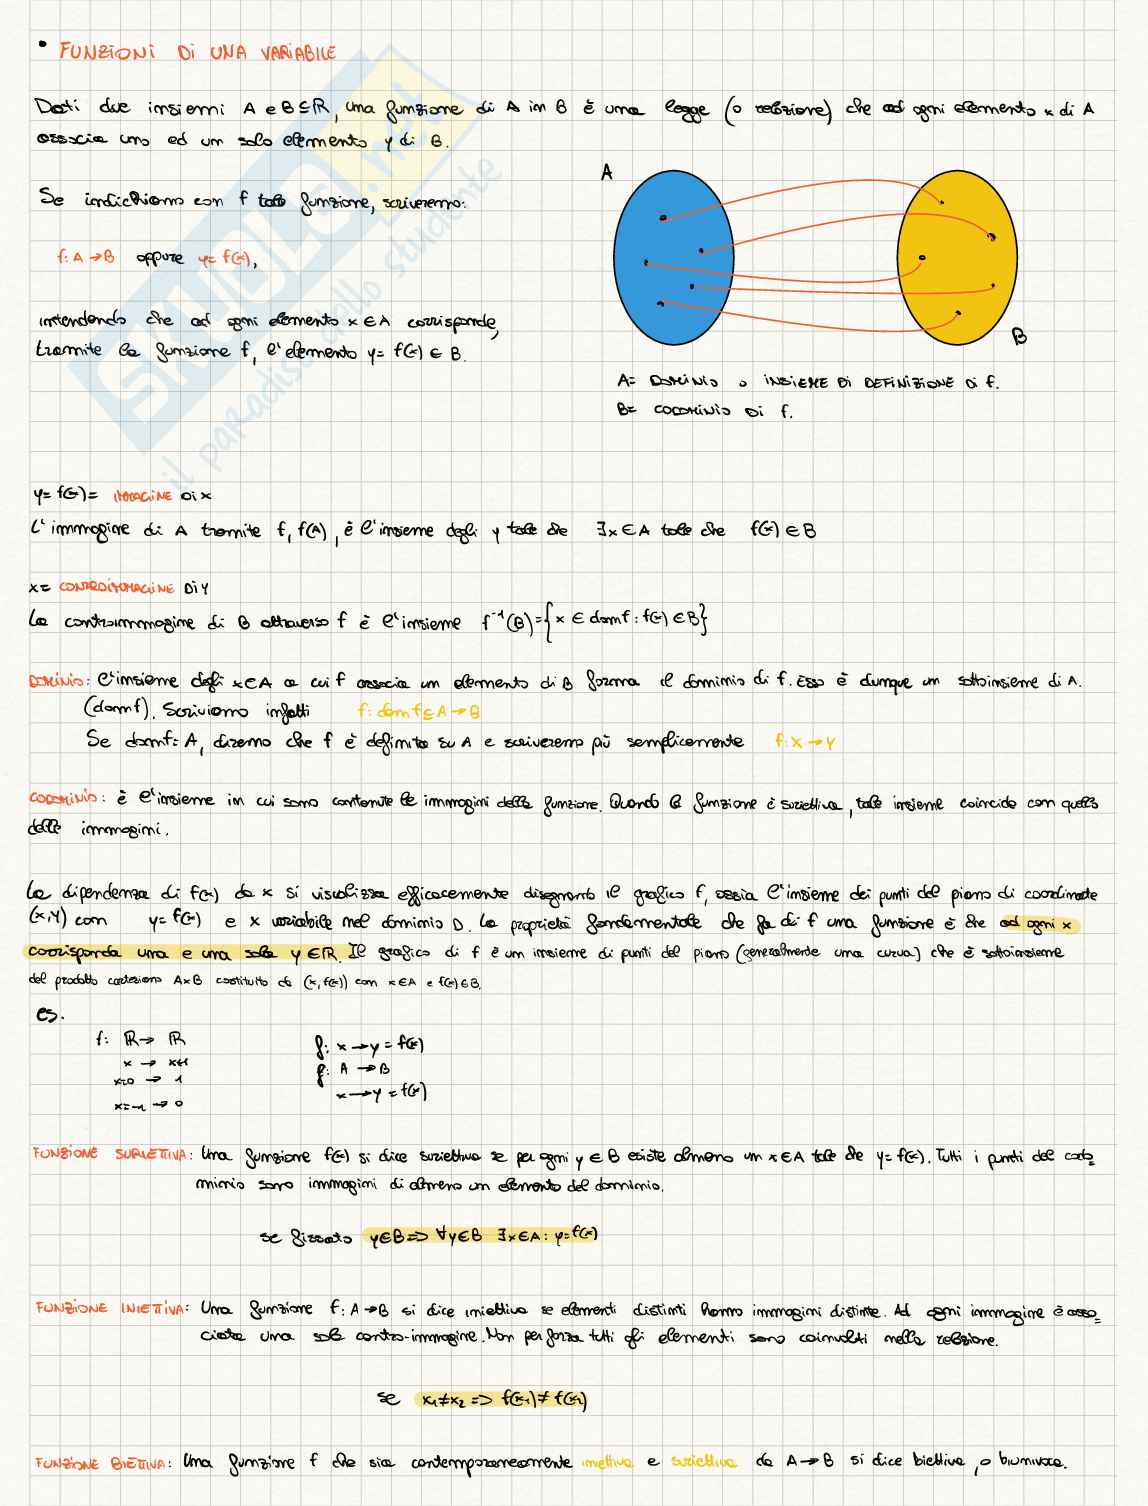 • FUNZIONI DI UNA VARIABILE
Dati due insiemi A e B ⊆ ℝ, una funzione di A in B è una legge (o relazione) che ad ogni elemento x di A
associa uno ed un solo elemento y di B.
A
Se indichiamo con f tale funzione, scriveremo:
f: A → B oppure y = f(x),
intendendo che ad ogni elemento x ∈ A corrisponde,
tramite la funzione f, l'elemento y = f(x) ∈ B.
B
A = DOMINIO o INSIEME DI DEFINIZIONE DI f.
B = CODOMINIO DI f.
SKUOLA.net
il paradiso dello studente
y = f(x) = IMMAGINE DI x
L'immagine di A tramite f, f(A), è l'insieme degli y tale che ∃x ∈ A tale che f(x) ∈ B
x = CONTROIMMAGINE DI Y
La controimmagine di B attraverso f è l'insieme f⁻¹(B) = {x ∈ domf : f(x) ∈ B}
DOMINIO: l'insieme degli x ∈ A a cui f associa un elemento di B forma il dominio di f. Esso è dunque un sottoinsieme di A.
(domf). Scriviamo infatti f: domf ⊆ A → B
Se domf = A, diremo che f è definita su A e scriveremo più semplicemente f: X → Y
CODOMINIO: è l'insieme in cui sono contenute le immagini della funzione. Quando la funzione è suriettiva, tale insieme coincide con quello
delle immagini.
La dipendenza di f(x) da x si visualizza efficacemente disegnando il grafico f, ossia l'insieme dei punti del piano di coordinate
(x,y) con y = f(x) e x variabile nel dominio D. La proprietà fondamentale che fa di f una funzione è che ad ogni x
corrisponda una e una sola y ∈ ℝ. Il grafico di f è un insieme di punti del piano (generalmente una curva) che è sottoinsieme
del prodotto cartesiano A×B costituito da (x, f(x)) con x ∈ A e f(x) ∈ B.
es.
f: ℝ → ℝ
x → x+1
x=0 → 1
x=-1 → 0
f: x → y = f(x)
f: A → B
x → y = f(x)
FUNZIONE SURIETTIVA: Una funzione f(x) si dice suriettiva se per ogni y ∈ B esiste almeno un x ∈ A tale che y = f(x). Tutti i punti del codo=
minio sono immagini di almeno un elemento del dominio.
se fissato y ∈ B => ∀y ∈ B ∃x ∈ A : y = f(x)
FUNZIONE INIETTIVA: Una funzione f: A → B si dice iniettiva se elementi distinti hanno immagini distinte. Ad ogni immagine è asso=
ciata una sola contro-immagine. Non per forza tutti gli elementi sono coinvolti nella relazione.
se x₁ ≠ x₂ => f(x₁) ≠ f(x₂)
FUNZIONE BIETTIVA: Una funzione f che sia contemporaneamente iniettiva e suriettiva da A → B si dice biettiva, o biunivoca.